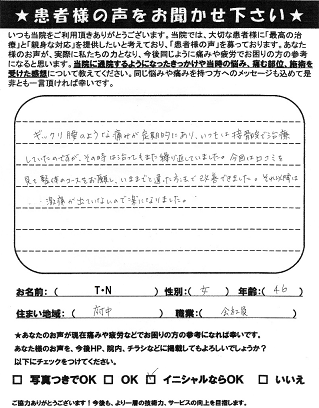 ★患者様の声をお聞かせ下さい★
いつも当院をご利用頂きありがとうございます。当院では、大切な患者様に「最高の治
療」と「親身な対応」を提供したいと考えており、「患者様の声」を募っております。あなた
様のお声が、実際に私たちの力となり、今後同じように痛みや疲労でお困りの方の参考
になると思います。当院に通院するようになったきっかけや当時の悩み、痛む部位、施術を
受けた感想について教えてください。同じ悩みや痛みを持つ方へのメッセージも込めて是
非とも一言頂ければ幸いです。
ギックリ腰のような痛みが定期的にあり、いつもは接骨院で治療
していたのですが、その時は治ってもまた繰り返していました。今回は口コミを
見て整体のコースをお願いし、いままでと違った方法で改善できました。それ以降は
激痛が出ていないので楽になりました。
お名前：（ T・N ）性別：（ 女 ）年齢：（ 46 ）
住まい地域：（ 府中 ）職業：（ 会社員 ）
★あなたのお声が現在痛みや疲労などでお困りの方の参考になれば幸いです。
あなた様のお声を、今後HP、院内、チラシなどに掲載してもよろしいでしょうか？
以下にチェックをつけてください。
□ 写真つきでOK □ OK ☑ イニシャルならOK □ いいえ
ご協力ありがとうございます！今後も、より一層の技術力、サービスの向上を目指します。